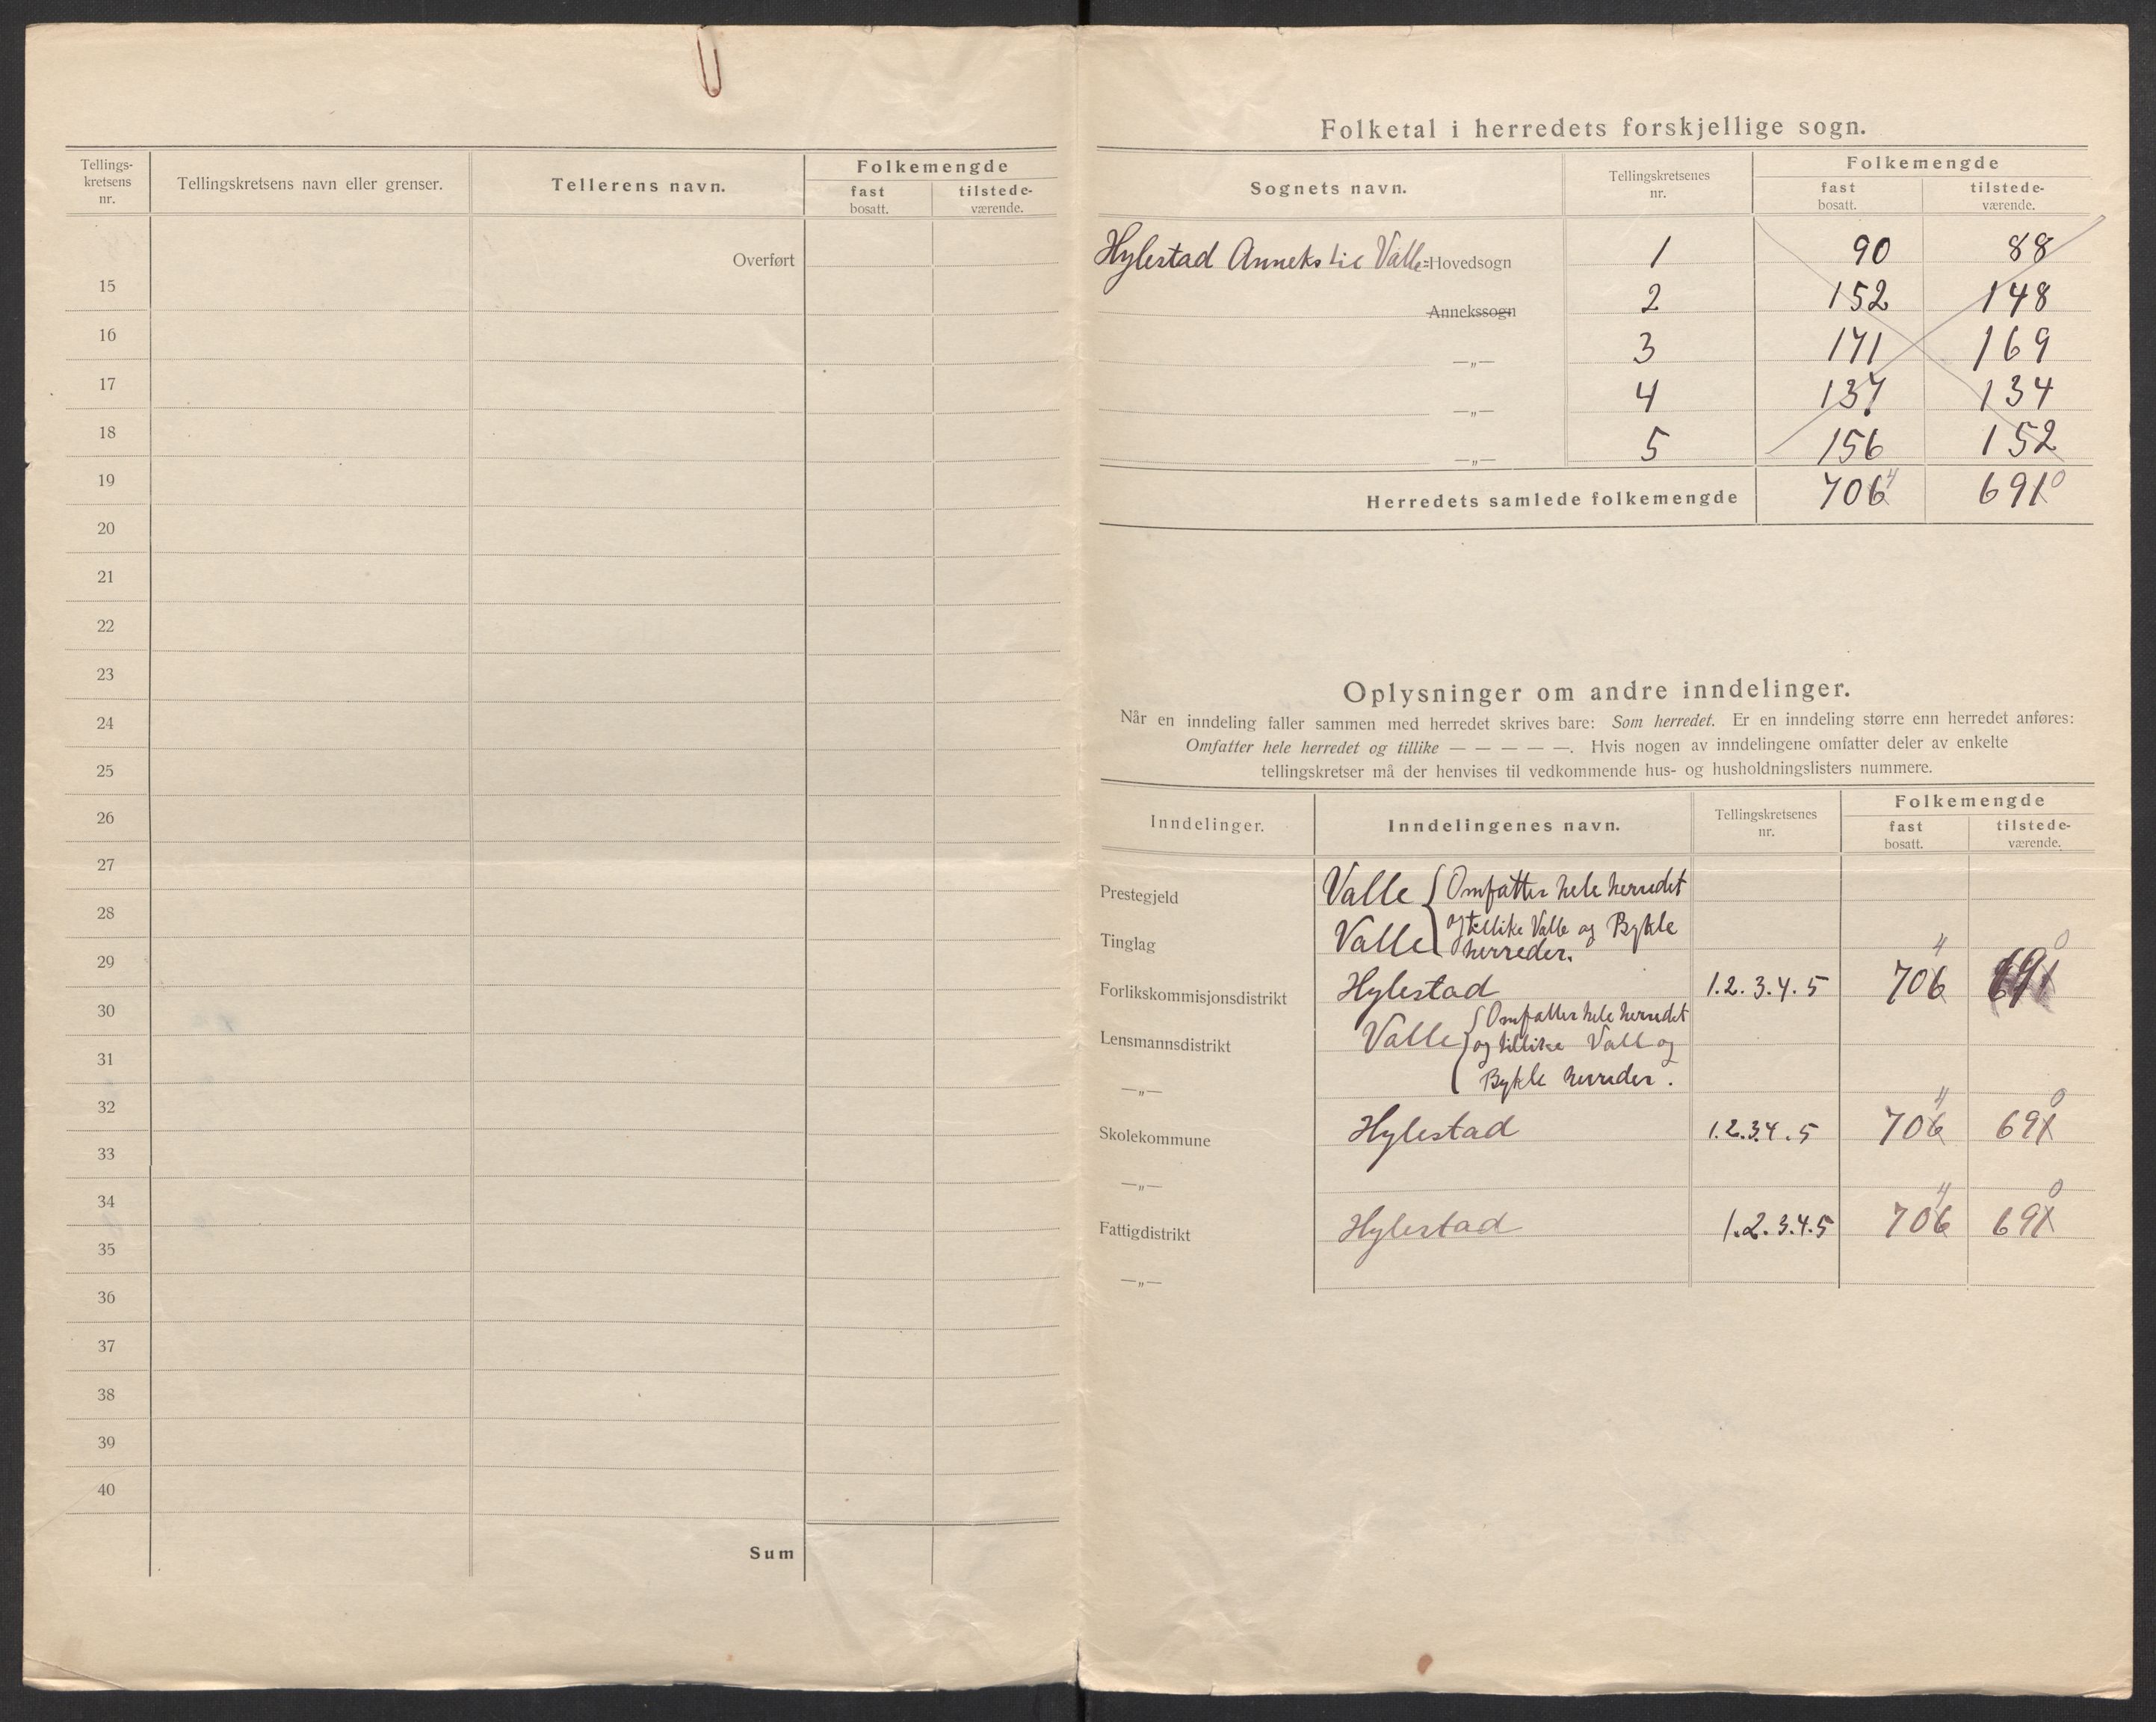 Tellings-
kretsens
nr.
Tellingskretsens navn eller grenser.
Tellerens navn.
Folkemengde
fast
bosatt.
tilstede-
værende.
Overført
15
16
17
18
19
20
21
22
23
24
25
26
27
28
29
30
31
32
33
34
35
36
37
38
39
40
Sum
Folketal i herredets forskjellige sogn.
Sognets navn.
Tellingskretsenes
nr.
Folkemengde
fast
bosatt.
tilstede-
værende.
Hylestad Anneks til Valle=Hovedsogn 1 90 88
Annekssogn 2 152 148
—„— 3 171 169
—„— 4 137 134
—„— 5 156 152
Herredets samlede folkemengde 706 4 691 0
Oplysninger om andre inndelinger.
Når en inndeling faller sammen med herredet skrives bare: Som herredet. Er en inndeling større enn herredet anføres:
Omfatter hele herredet og tillike — — — — —. Hvis nogen av inndelingene omfatter deler av enkelte
tellingskretser må der henvises til vedkommende hus- og husholdningslisters nummere.
Inndelinger.
Inndelingenes navn.
Tellingskretsenes
nr.
Folkemengde
fast
bosatt.
tilstede-
værende.
Prestegjeld Valle { Omfatter hele herredet
Tinglag Valle og tillike Valle og Bykle
herreder.
4 0
Forlikskommisjonsdistrikt Hylestad 1.2.3.4.5 706 691
Lensmannsdistrikt Valle { Omfatter hele herredet
og tillike Valle og
—„— Bykle herreder.
4 0
Skolekommune Hylestad 1.2.3.4.5 706 691
—„—
4 0
Fattigdistrikt Hylestad 1.2.3.4.5 706 691
—„—